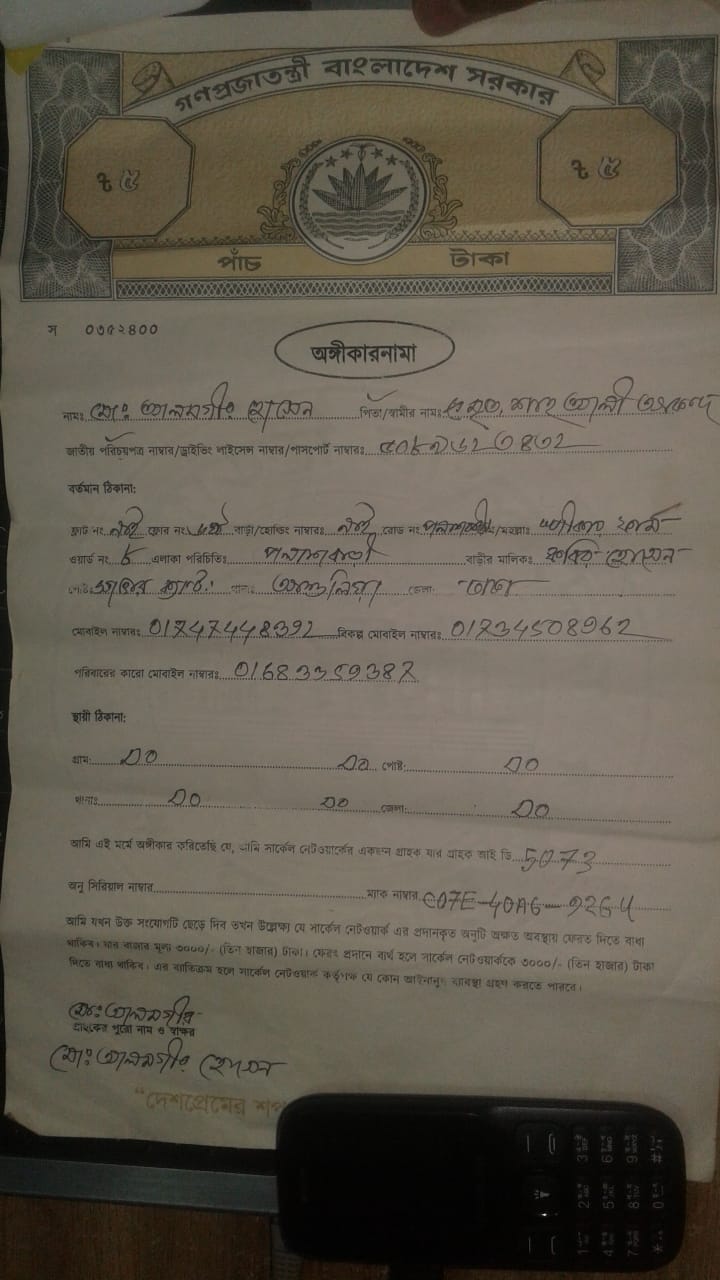 গণপ্রজাতন্ত্রী বাংলাদেশ সরকার
৳ ৫ ৳ ৫
পাঁচ টাকা
স ০৩৫২৪০০
অঙ্গীকারনামা
নামঃ মোঃ আলমগীর হোসেন পিতা/স্বামীর নামঃ মৃত, শাহ আলী
জাতীয় পরিচয়পত্র নাম্বার/ড্রাইভিং লাইসেন্স নাম্বার/পাসপোর্ট নাম্বারঃ
বর্তমান ঠিকানা:
ফ্লাট নং নাই ফ্লোর নং ৪র্থ বাড়ী/হোল্ডিং নাম্বারঃ নাই রোড নং পলাশবাড়ী
ওয়ার্ড নং ৮ এলাকা পরিচিতিঃ পলাশবাড়ী বাড়ীর মালিকঃ কবির হোসেন
পোষ্টঃ থানাঃ আশুলিয়া জেলা: ঢাকা
মোবাইল নাম্বারঃ 01747448392 বিকল্প মোবাইল নাম্বারঃ 01734508962
পরিবারের কারো মোবাইল নাম্বারঃ 01683359387
স্থায়ী ঠিকানা:
গ্রাম: ঐ ঐ পোষ্ট: ঐ
থানাঃ ঐ ঐ জেলা: ঐ
আমি এই মর্মে অঙ্গীকার করিতেছি যে, আমি সার্কেল নেটওয়ার্কের একজন গ্রাহক যার গ্রাহক আই ডি 5073
অনু সিরিয়াল নাম্বার ম্যাক নাম্বার C07E-40A6-
আমি যখন উক্ত সংযোগটি ছেড়ে দিব তখন উল্লেক্ষ্য যে সার্কেল নেটওয়ার্ক এর প্রদানকৃত অনুটি অক্ষত অবস্থায় ফেরত দিতে বাধ্য
থাকিব। যার বাজার মূল্য ৩০০০/- (তিন হাজার) টাকা। ফেরৎ প্রদানে ব্যর্থ হলে সার্কেল নেটওয়ার্ককে ৩০০০/- (তিন হাজার) টাকা
দিতে বাধ্য থাকিব। এর ব্যতিক্রম হলে সার্কেল নেটওয়ার্ক কর্তৃপক্ষ যে কোন আইনানুগ ব্যবস্থা গ্রহণ করতে পারবে।
মোঃ আলমগীর
গ্রাহকের পুরো নাম ও স্বাক্ষর
মোঃ আলমগীর হোসেন
"দেশপ্রেমের শপ